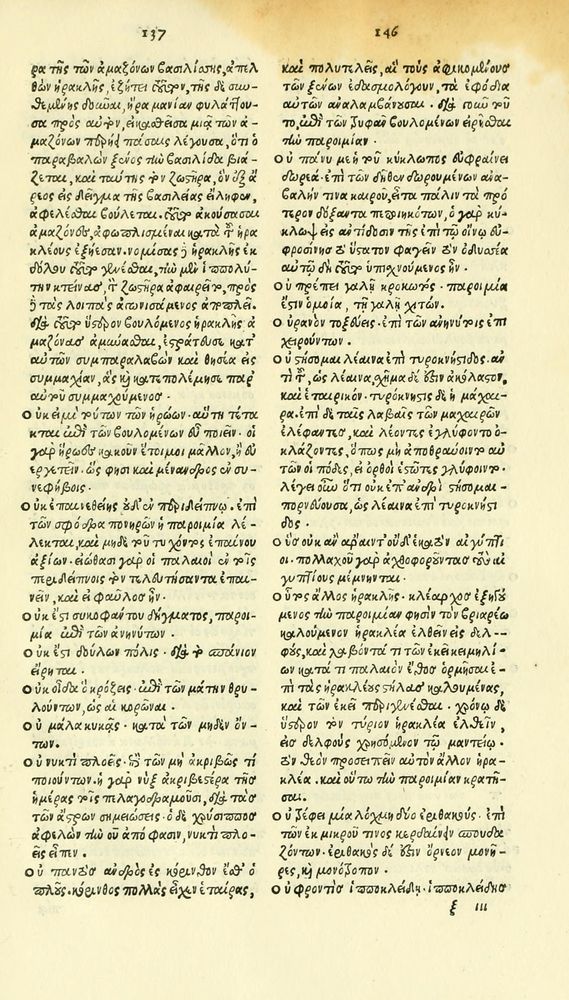 137
ρα τῆς τῶν ἀμαζόνων βασιλίσης, ἀπελ
θὼν ἡρακλῆς, ἐζήτει τοῦτον, τῆς δὲ σωζ
θεμένης δοῦναι, ἥρα μανίαν φυλάττου-
σα πρὸς αὐτὸν, εἰκασθεῖσα μιᾷ τῶν ἀ-
μαζόνων περιῄει πάσαις λέγουσα, ὅτι ὁ
παραβαλὼν ξένος τὴν βασιλίδα βιά-
ζεται, καὶ ταύτης τὸν ζωστῆρα, ὃν ἐξ ἄ
ρεος εἰς δεῖγμα τῆς βασιλείας εἴληφεν,
ἀφελέσθαι βούλεται. τοῦτο ἀκούσασαι
ἀμαζόνες, ἀφωπλισμέναι κατὰ τοῦ ἡρα
κλέους ἐξῄεσαν. νομίσας δὲ ἡρακλῆς ἐκ
δόλου τοῦτο γενέσθαι, τὴν μὲν ἱππολύ-
την κτείνας, τὸν ζωστῆρα ἀφαιρεῖται, πρὸς
δὲ τὰς λοιπὰς ἀγωνισάμενος ἀποπλεῖ.
διὰ τοῦτο ὕστερον βουλόμενος ἡρακλῆς ἀ
μαζόνας ἀμύνασθαι, ἐστράτευσε κατ'
αὐτῶν συμπαραλαβὼν καὶ θησέα εἰς
συμμαχίαν, ἃς καὶ κατεπολέμησε παρ'
αὐτοῦ συμμαχούμενος.
Οὐκ εἰμὶ τούτων τῶν ἡρώων. αὕτη τέτα
κται ἐπὶ τῶν βουλομένων εὖ ποιεῖν. οἱ
γὰρ ἥρωες κακοῦν ἕτοιμοι μᾶλλον, ἢ εὐ
εργετεῖν. ὥς φησι καὶ μένανδρος ἐν συ-
νεφήβοις.
Οὐκ ἐπαινεθείης οὐδ' ἐν περιδείπνῳ. ἐπὶ
τῶν σφόδρα πονηρῶν ἡ παροιμία λέ-
λεκται, καὶ μηδὲ τοῦ τυχόντος ἐπαίνου
ἀξίων. εἰώθασι γὰρ οἱ παλαιοὶ ἐν τοῖς
περιδείπνοις τὸν τελευτήσαντα ἐπαι-
νεῖν, καὶ εἰ φαῦλος ἦν.
Οὐκ ἔστι συκοφάντου δήγματος, παροι-
μία ἐπὶ τῶν ἀνηνύτων.
Οὐκ ἔστι δούλων πόλις. διὰ τὸ σπάνιον
εἴρηται.
Οὐκ οἶδα ὃ κρώζεις. ἐπὶ τῶν μάτην θρυ-
λούντων, ὡς αἱ κορῶναι.
Οὐ μαλακυκᾶς. κατὰ τῶν μηδὲν ὄν-
των.
Οὐ νυκτὶ πλοεῖς. ἐπὶ τῶν μὴ ἀκριβῶς τὶ
ποιούντων. ἡ γὰρ νὺξ ἀκριβεστέρα τῆς
ἡμέρας τοῖς πελαγοδρομοῦσι, διὰ τὰς
τῶν ἄστρων σημειώσεις. ὁ δὲ χρύσιππος
ἀφελὼν τὴν οὐ ἀπόφασιν, νυκτὶ πλο-
εῖς εἶπεν.
Οὐ παντὸς ἀνδρὸς ἐς κόρινθον ἔσθ' ὁ
πλοῦς. κόρινθος πολλὰς εἶχεν ἑταίρας,
146
καὶ πολυτελεῖς, αἳ τοὺς ἀφικομένους
τῶν ξένων ἐδασμολόγουν, τὰ ἐφόδια
αὐτῶν ἀναλαμβάνουσαι. διὰ τοῦτο
ἐπὶ τῶν τρυφᾶν βουλομένων εἰρῆσθαι
τὴν παροιμίαν.
Οὐ πάνυ με ἡ τοῦ κύκλωπος εὐφραίνει
δωρεά. ἐπὶ τῶν δῆθεν δωρουμένων ἀνα-
βολήν τινα καιροῦ, εἶτα πάλιν τὰ πρό
τερον δόξαντα πεποιηκότων, ὁ γὰρ κύ-
κλωψ εἰς ἀντίδοσιν τῆς ἐπὶ τῷ οἴνῳ εὐ-
φροσύνης τὸ ὕστατον φαγεῖν τὸν ὀδυσσέα
αὐτῷ δὴ τοῦτο ὑπισχνούμενος ἦν.
Οὐ πρέπει γαλῇ κροκωτός. παροιμία
ἐστὶν ὁμοία, τῇ γαλῇ χιτών.
Οὐρανὸν τοξεύεις. ἐπὶ τῶν ἀνηνύτοις ἐπι
χειρούντων.
Οὐ στήσομαι λέαινα ἐπὶ τυροκνήστιδος. ἀν
τὶ τοῦ, ὡς λέαινα, σχῆμα δέ ἐστιν ἀκόλαστον,
καὶ ἑταιρικόν. τυρόκνηστις δὲ ἡ μάχαι-
ρα. ἐπὶ δὲ ταῖς λαβαῖς τῶν μαχαιρῶν
ἐλέφαντες, καὶ λέοντες ἐγλύφοντο ὀ-
κλάζοντες, ὅπως μὴ ἀποθραύοιντο αὐ
τῶν οἱ πόδες, εἰ ὀρθοὶ ἑστῶτες γλύφοιντο.
λέγει οὖν ὅτι οὐκ ἐπ' ἀνδρὶ στήσομαι.
πορνεύουσα, ὡς λέαινα ἐπὶ τυροκνήστι
δος.
Οὓς οὐκ ἂν ἄραιντ' οὐδ' ἑκατὸν αἰγύπτι
οι. πολλαχοῦ γὰρ ἀχθοφοροῦντας τοὺς αἰ
γυπτίους μέμνηνται.
Οὗτος ἄλλος ἡρακλῆς. κλέαρχος ἐξηγού
μενος τὴν παροιμίαν φησὶν τὸν βριαρέω
καλούμενον ἡρακλέα ἐλθεῖν εἰς δελ--
φοὺς, καὶ λαβόντα τι τῶν ἐκεῖ κειμηλί-
ων κατά τι παλαιὸν ἔθος ὁρμῆσαι ἐ-
πὶ τὰς ἡρακλέους στήλας καλουμένας,
καὶ τῶν ἐκεῖ περιγενέσθαι. χρόνῳ δὲ
ὕστερον τὸν τύριον ἡρακλέα ἐλθεῖν,
εἰς δελφοὺς χρησόμενον τῷ μαντείῳ.
τὸν θεὸν προσειπεῖν αὐτὸν ἄλλον ἡρα-
κλέα. καὶ οὕτω τὴν παροιμίαν κρατῆ-
σαι.
Οὐ τρέφει μία λόχμη δύο ἐριθακούς. ἐπὶ
τῶν ἐκ μικροῦ τινος κερδαίνειν σπουδα
ζόντων. ἐριθακὸς δέ ἐστιν ὄρνεον μονῆ-
ρες, καὶ μονότροπον.
Οὐ φροντὶς ἱπποκλείδῃ. ἱπποκλείδης
ξ iii